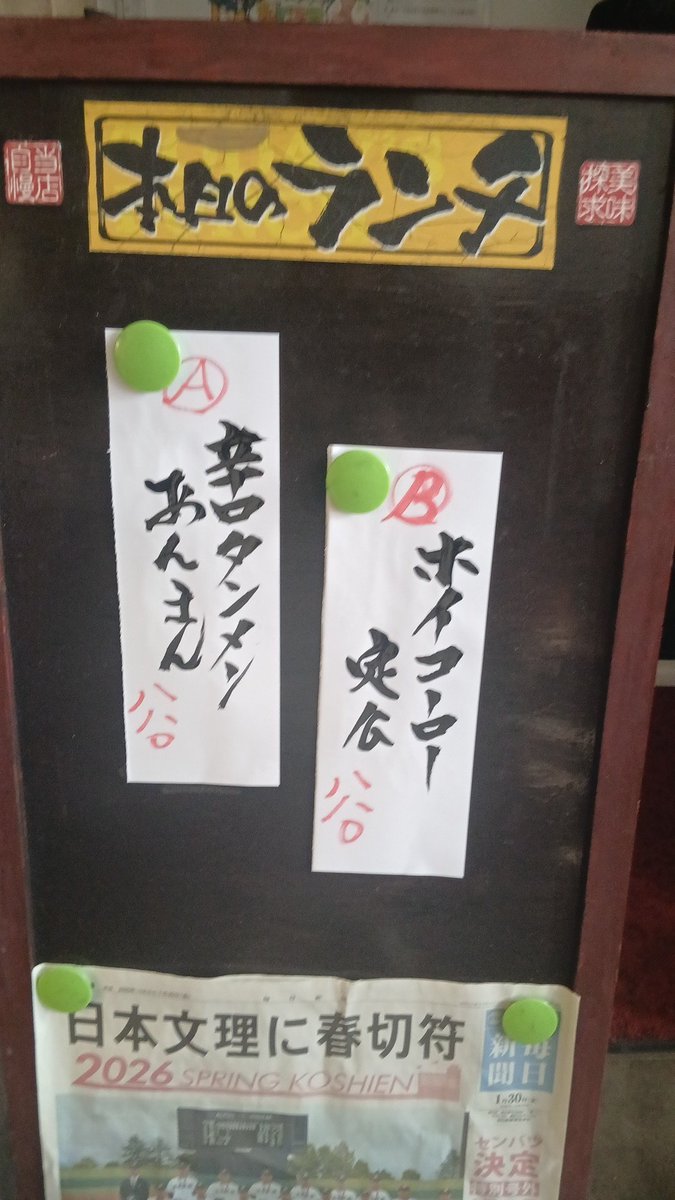 当店
自慢
本日のランチ
美味
探求
A
辛口タンメン
あんまん
B
ホイコーロー
定食
日本文理に春切符
2026 SPRING KOSHIEN
毎日
新聞
1月30日
センバツ
決定
特別号外